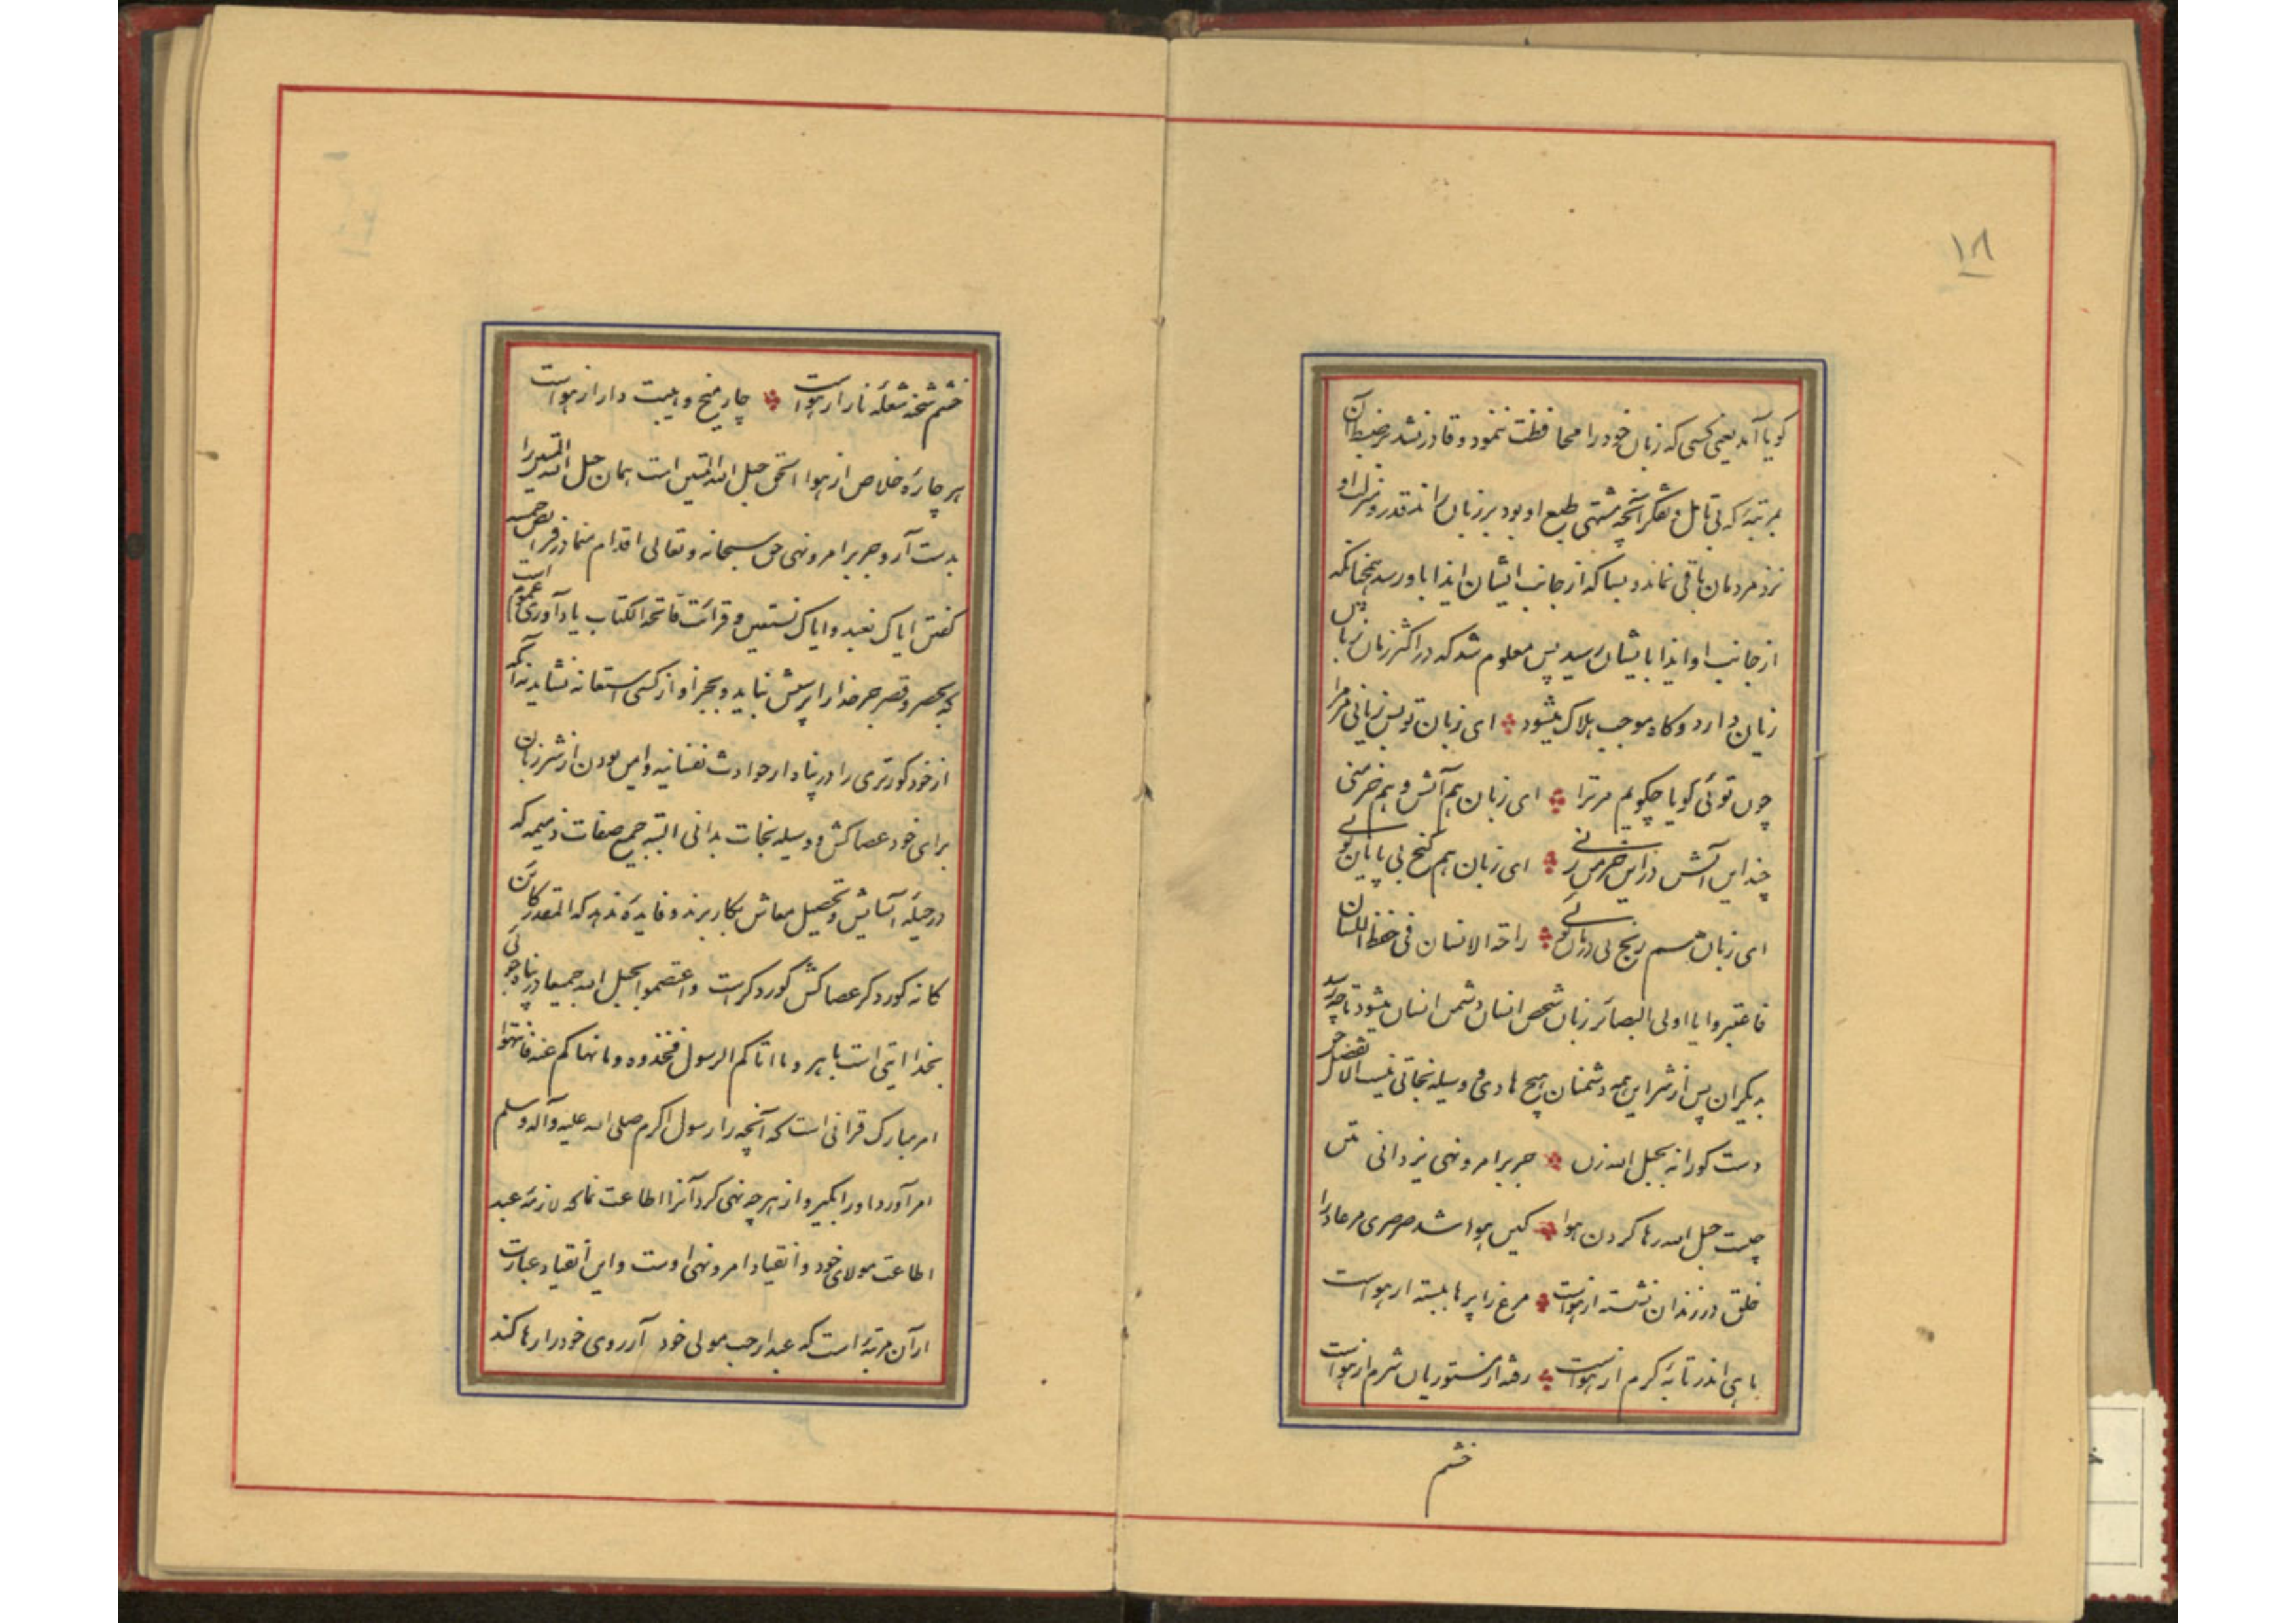 ۱۸
کویا آید یعنی کسی که زبان خود را محافظت ننمود و قادر نشد بر ضبط آن
بمرتبهٔ که بی تأمل و تفکر آنچه مشتهی طبع او بود بر زبان راند قدر و منزلت او
نزد مردمان باقی نماند و بسا که از جانب ایشان ایذا باو رسد همچنانکه
از جانب او ایذا بایشان رسید پس معلوم شد که در اکثر زبان زبانس
زیان دارد و کاه موجب هلاک میشود ای زبان تو بس زیانی مر مرا
چون توئی کویا چکویم مر ترا ای زبان هم آتش و هم خرمنی
چند این آتش در این خرمن زنی ای زبان هم کنج بی پایان توئی
ای زبان هم رنج بی درمان توئی راحة الانسان فی حفظ اللسان
فاعتبروا یا اولی البصائر زبان شخص انسان دشمن انسان میشود تا چه رسد
بدیکران پس از شر این همه دشمنان هیچ هادی و وسیله نجاتی نیست الا
دست کورانه بحبل الله زن جز بر امر و نهی یزدانی متن
چیست حبل الله رها کردن هوا کین هوا شد صرصری مر عاد را
خلق در زندان نشسته از هواست مرغ را پرها ببسته از هواست
ماهی اندر تابهٔ کرم از هواست رفته از مستوریان شرم از هواست
خشم
خشم شحنه شعلهٔ نار از هواست چار میخ و هیبت دار از هواست
هر چارهٔ خلاص از هوا استی حبل الله المتین است همان حبل الله المتین را
بدست آر و جز بر امر و نهی حق سبحانه و تعالی اقدام منما در فرائض خمسه
کفتن ایاک نعبد و ایاک نستعین و قرائت فاتحة الکتاب یاد آوری عموم است
که بحصر و قصر جز خدا را پرستش نباید و بجز او از کسی استعانه نشاید نه آنکه
از خود کورتری را در پناه از حوادث نفسانیه و ایمن بودن از شر زبان
برای خود عصاکش و وسیله نجات بدانی البته جمیع صفات ذمیمه که
در حیلهٔ آسایش و تحصیل معاش بکار برند و فایده ندهد که المقدر کائن
کانه کور دکر عصاکش کور دکر است و اعتصموا بحبل الله جمیعا در پناه جوئی
بخدا ایتی است باهر و ما اتاکم الرسول فخذوه و ما نهاکم عنه فانتهوا
امر مبارک قرانی است که آنچه را رسول اکرم صلی الله علیه و آله و سلم
امر آورد او را بگیر و از هر چه نهی کرد آنرا اطاعت نما که لازمهٔ عبد
اطاعت مولای خود و انقیاد امر و نهی اوست و این انقیاد عبارت
از آن مرتبهٔ است که عبد از حب مولی خود آرزوی خود را رها کند